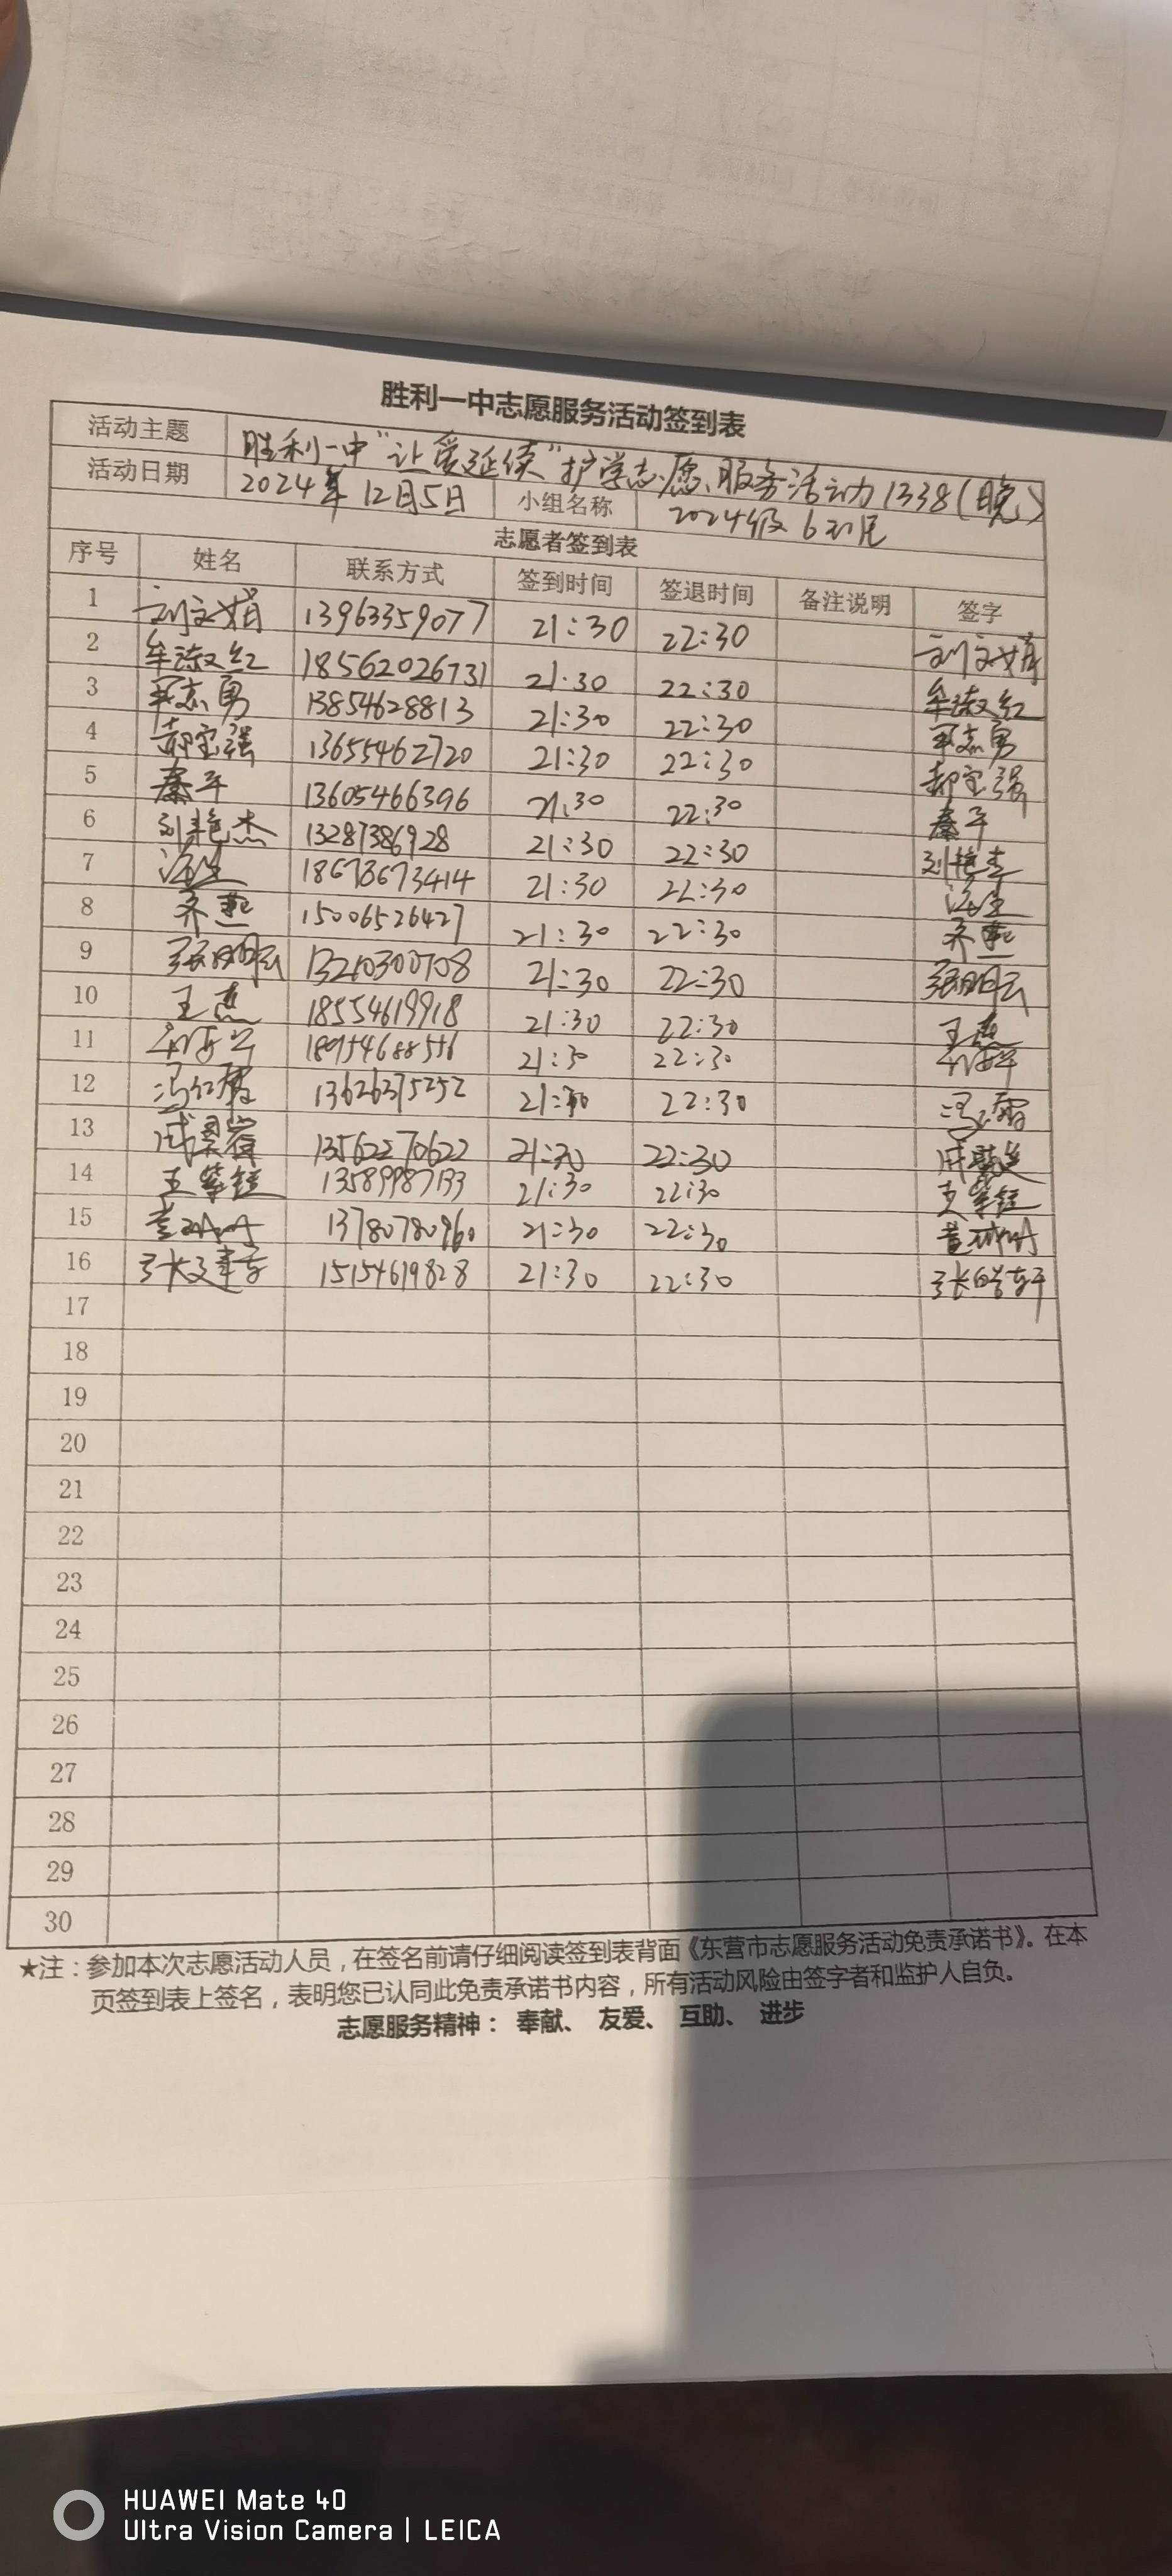 胜利一中志愿服务活动签到表
活动主题 胜利一中"让爱延续"护学志愿服务活动1338(晚)
活动日期 2024年12月5日 小组名称 2024级6班
志愿者签到表
序号 姓名 联系方式 签到时间 签退时间 备注说明 签字
1 刘文娟 13963359077 21:30 22:30 刘文娟
2 牟淑红 18562026731 21:30 22:30 牟淑红
3 志勇 13854628813 21:30 22:30 志勇
4 郝宝强 13655462720 21:30 22:30 郝宝强
5 秦平 13605466396 21:30 22:30 秦平
6 刘艳杰 13287386928 21:30 22:30 刘艳杰
7 18678673414 21:30 22:30
8 齐燕 15006526427 21:30 22:30 齐燕
9 张明云 13210300708 21:30 22:30 张明云
10 王杰 18554619918 21:30 22:30 王杰
11 21:30 22:30
12 冯红霞 13626375252 21:30 22:30 冯霞
13 13562270622 21:30 22:30
14 王 13589987133 21:30 22:30 王
15 13780780960 21:30 22:30
16 张文 15154619828 21:30 22:30 张皓轩
17
18
19
20
21
22
23
24
25
26
27
28
29
30
★注：参加本次志愿活动人员，在签名前请仔细阅读签到表背面《东营市志愿服务活动免责承诺书》。在本
页签到表上签名，表明您已认同此免责承诺书内容，所有活动风险由签字者和监护人自负。
志愿服务精神： 奉献、 友爱、 互助、 进步
HUAWEI Mate 40
Ultra Vision Camera | LEICA